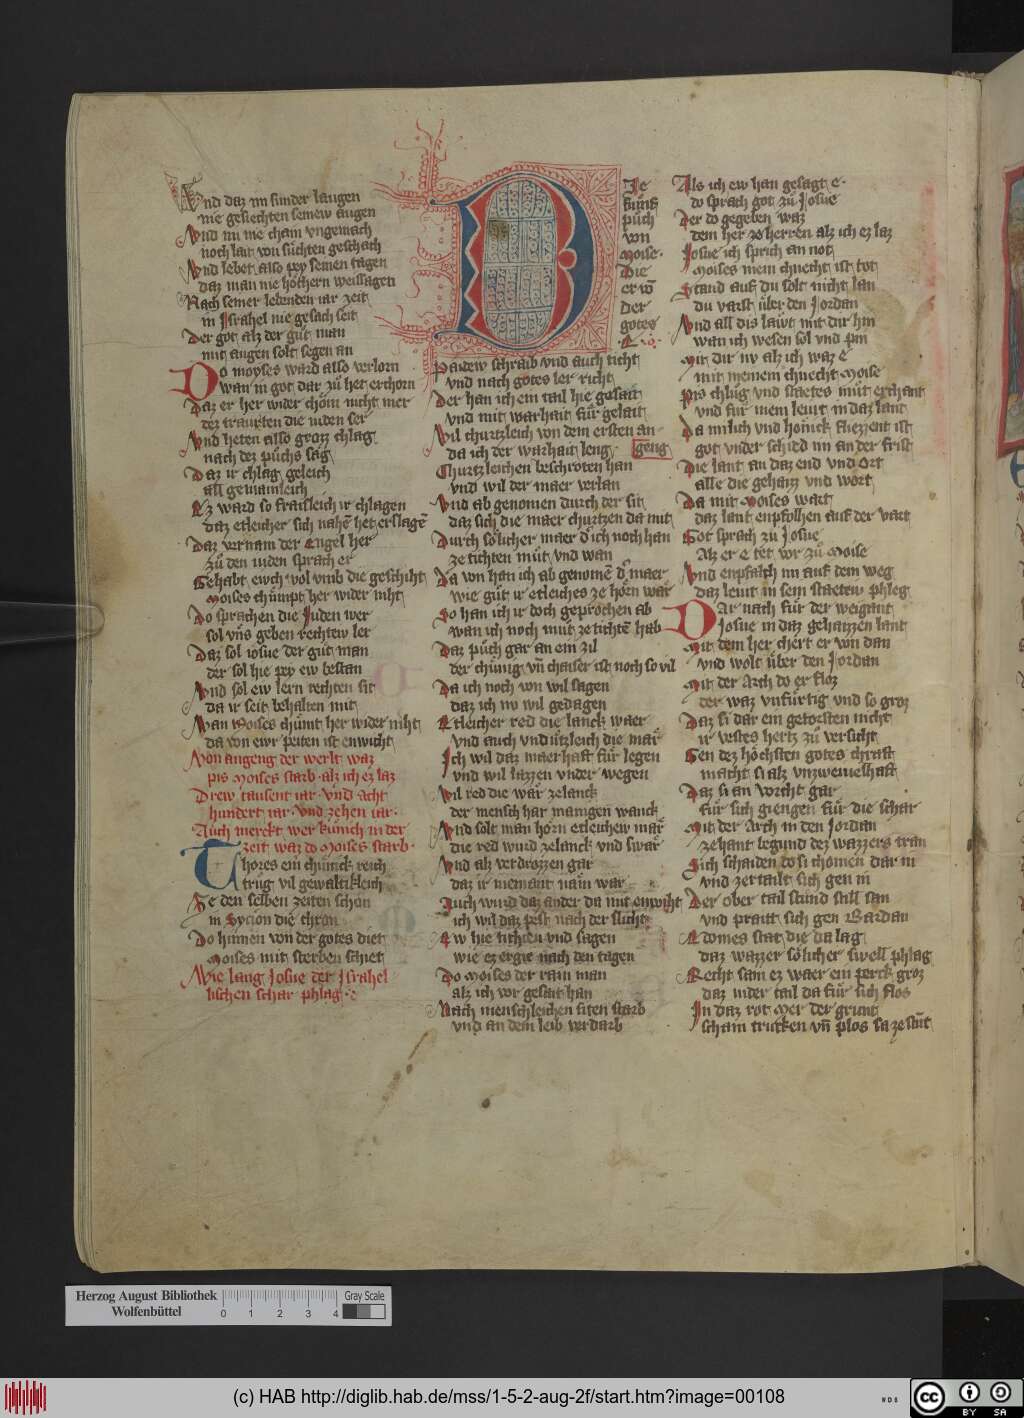 Vnd daz im sunder laugen
nie gesiechten seinew augen
Vnd im nie chain vngemach
noch lait von suchten geschach
Vnd lebet also pey seinen tagen
daz man nie hochern weissagen
Nach seiner lebenden iar zeit
in Israhel nie gesach seit
Der got alz der gut man
mit augen solt segen an
Do moyses ward also verlorn
wan in got dar zů het erchorn
Daz er her wider chom nicht mer
dez traurten die iuden ser
Vnd heten also grozz chlag
nach dez půchs sag
Daz ir chlag geleich
all gemainleich
Ez ward so fraisleich ir chlagen
daz etleicher sich nahē het erslagē
Daz vernam der Engel her
zů den iuden sprach er
Gehabt ewch wol vmb die geschiht
Moises chümpt her wider niht
Do sprachen die Juden wer
sol vns geben rechtew ler
Daz sol iosue der gut man
der sol hie pey ew bestan
Vnd sol ew lern rechten sit
da ir seit behalten mit
Wan Moises chümt her wider niht
da von ewr peiten ist enwicht
Von angeng der werlt waz
pis Moises starb alz ich ez laz
Drew tausent iar vnd acht
hundert iar vnd zehen iar
Auch merkt wer künich in der
zeit waz do Moises starb
Thores ein chünick reich
trůg vil gewaltikleich
Ze den selben zeiten schon
in Sycion die chron
Do hinnen von der gotes diet
Moises mit sterben schiet
Wie lang Josue der Israhel
lischen schar phlag
Die
fünf
půch
von
Moise
Die
er vō
der
gotes
E
Paidew schraib vnd auch ticht
vnd nach gotes ler richt
Der han ich ein tail hie gesait
vnd mit warhait für gelait
Vil churtzleich von dem ersten an
da ich der warhait leng geng
Churtzleichen beschroten han
vnd wil der maer verlan
Vnd ab genomen durch der sit
daz sich die maer churtzen da mit
Durch sölicher maer d ich noch han
ze tichten můt vnd wan
Da von han ich ab genomē d maer
wie gůt ir etleiches ze hörn wär
So han ich ir doch geprochen ab
wan ich noch můt ze tichtē hab
Daz půch gar an ein zil
der chünig vn chaiser ist noch so vil
Da ich noch von wil sagen
daz ich nv wil gedagen
Etleicher red die lanck waer
vnd auch vnnützleich die mär
Ich wil daz maerhaft für legen
vnd wil lazzen vnder wegen
Wil red die wär zelanck
der mensch hat manigen wanck
Vnd solt man hörn etleichew mär
die red wurd zelanck vnd swär
Vnd alz verdrozzen gar
daz ir niemant näm war
Auch wurd daz ander da mit enwiht
ich wil daz pest nach der sliht
Ew hie tichten vnd sagen
wie ez ergie nach den tagen
Do Moises der rain man
alz ich vor gesait han
Nach menschleichen siten starb
vnd an dem leib verdarb
Als ich ew han gesagt e
do sprach got zů Josue
Der do gegeben waz
dem her ze herren alz ich ez laz
Josue ich sprich an not
Moises mein chnecht ist tot
Stand auf du solt nicht lan
du varst über den Jordan
Vnd all dis läwt mit dir hin
wan ich wesen sol vnd pin
Mit dir nv alz ich waz e
mit meinem chnecht Moise
Pis chlůg vnd staetes můt erchant
vnd für mein leut in daz lant
Da milich vnd honick fliezzent ist
got vnder schied im an der frist
Die lant an daz end vnd ort
alle die gehaizz vnd wort
Da mit Moises wart
daz lant enpfolhen auf der vart
Got sprach zů Josue
Alz er e tet vor zů Moise
Vnd enpfalch im auf dem weg
daz leut in sein staetew phleg
Dar nach für der weigant
Josue in daz gehaizzen lant
Mit dem her chert er von dan
vnd wolt über den Jordan
Mit der Arch do er floz
der waz vnfürtig vnd so groz
Daz si dar ein getorsten nicht
ir vestes hertz zů versicht
Gen dez höchsten gotes chraft
macht si alz vnzweiuelhaft
Daz si an vorcht gar
für sich giengen für die schar
Mit der Arch in den Jordan
zehant begund dez wazzers tran
Sich schaiden do si chomen dar in
vnd zertailt sich gen in
Der ober tail stund still san
vnd prait sich gen Bardan
Edomes stat die da lag
daz wazzer sölicher swell phlag
Recht sam ez waer ein perck groz
daz nider tail da für sich flos
In daz rot Mer der grunt
schain trucken vn plos sa ze stūt
Herzog August Bibliothek
Wolfenbüttel
0 1 2 3 4
Gray Scale
(c) HAB http://diglib.hab.de/mss/1-5-2-aug-2f/start.htm?image=00108
WDB
cc BY SA